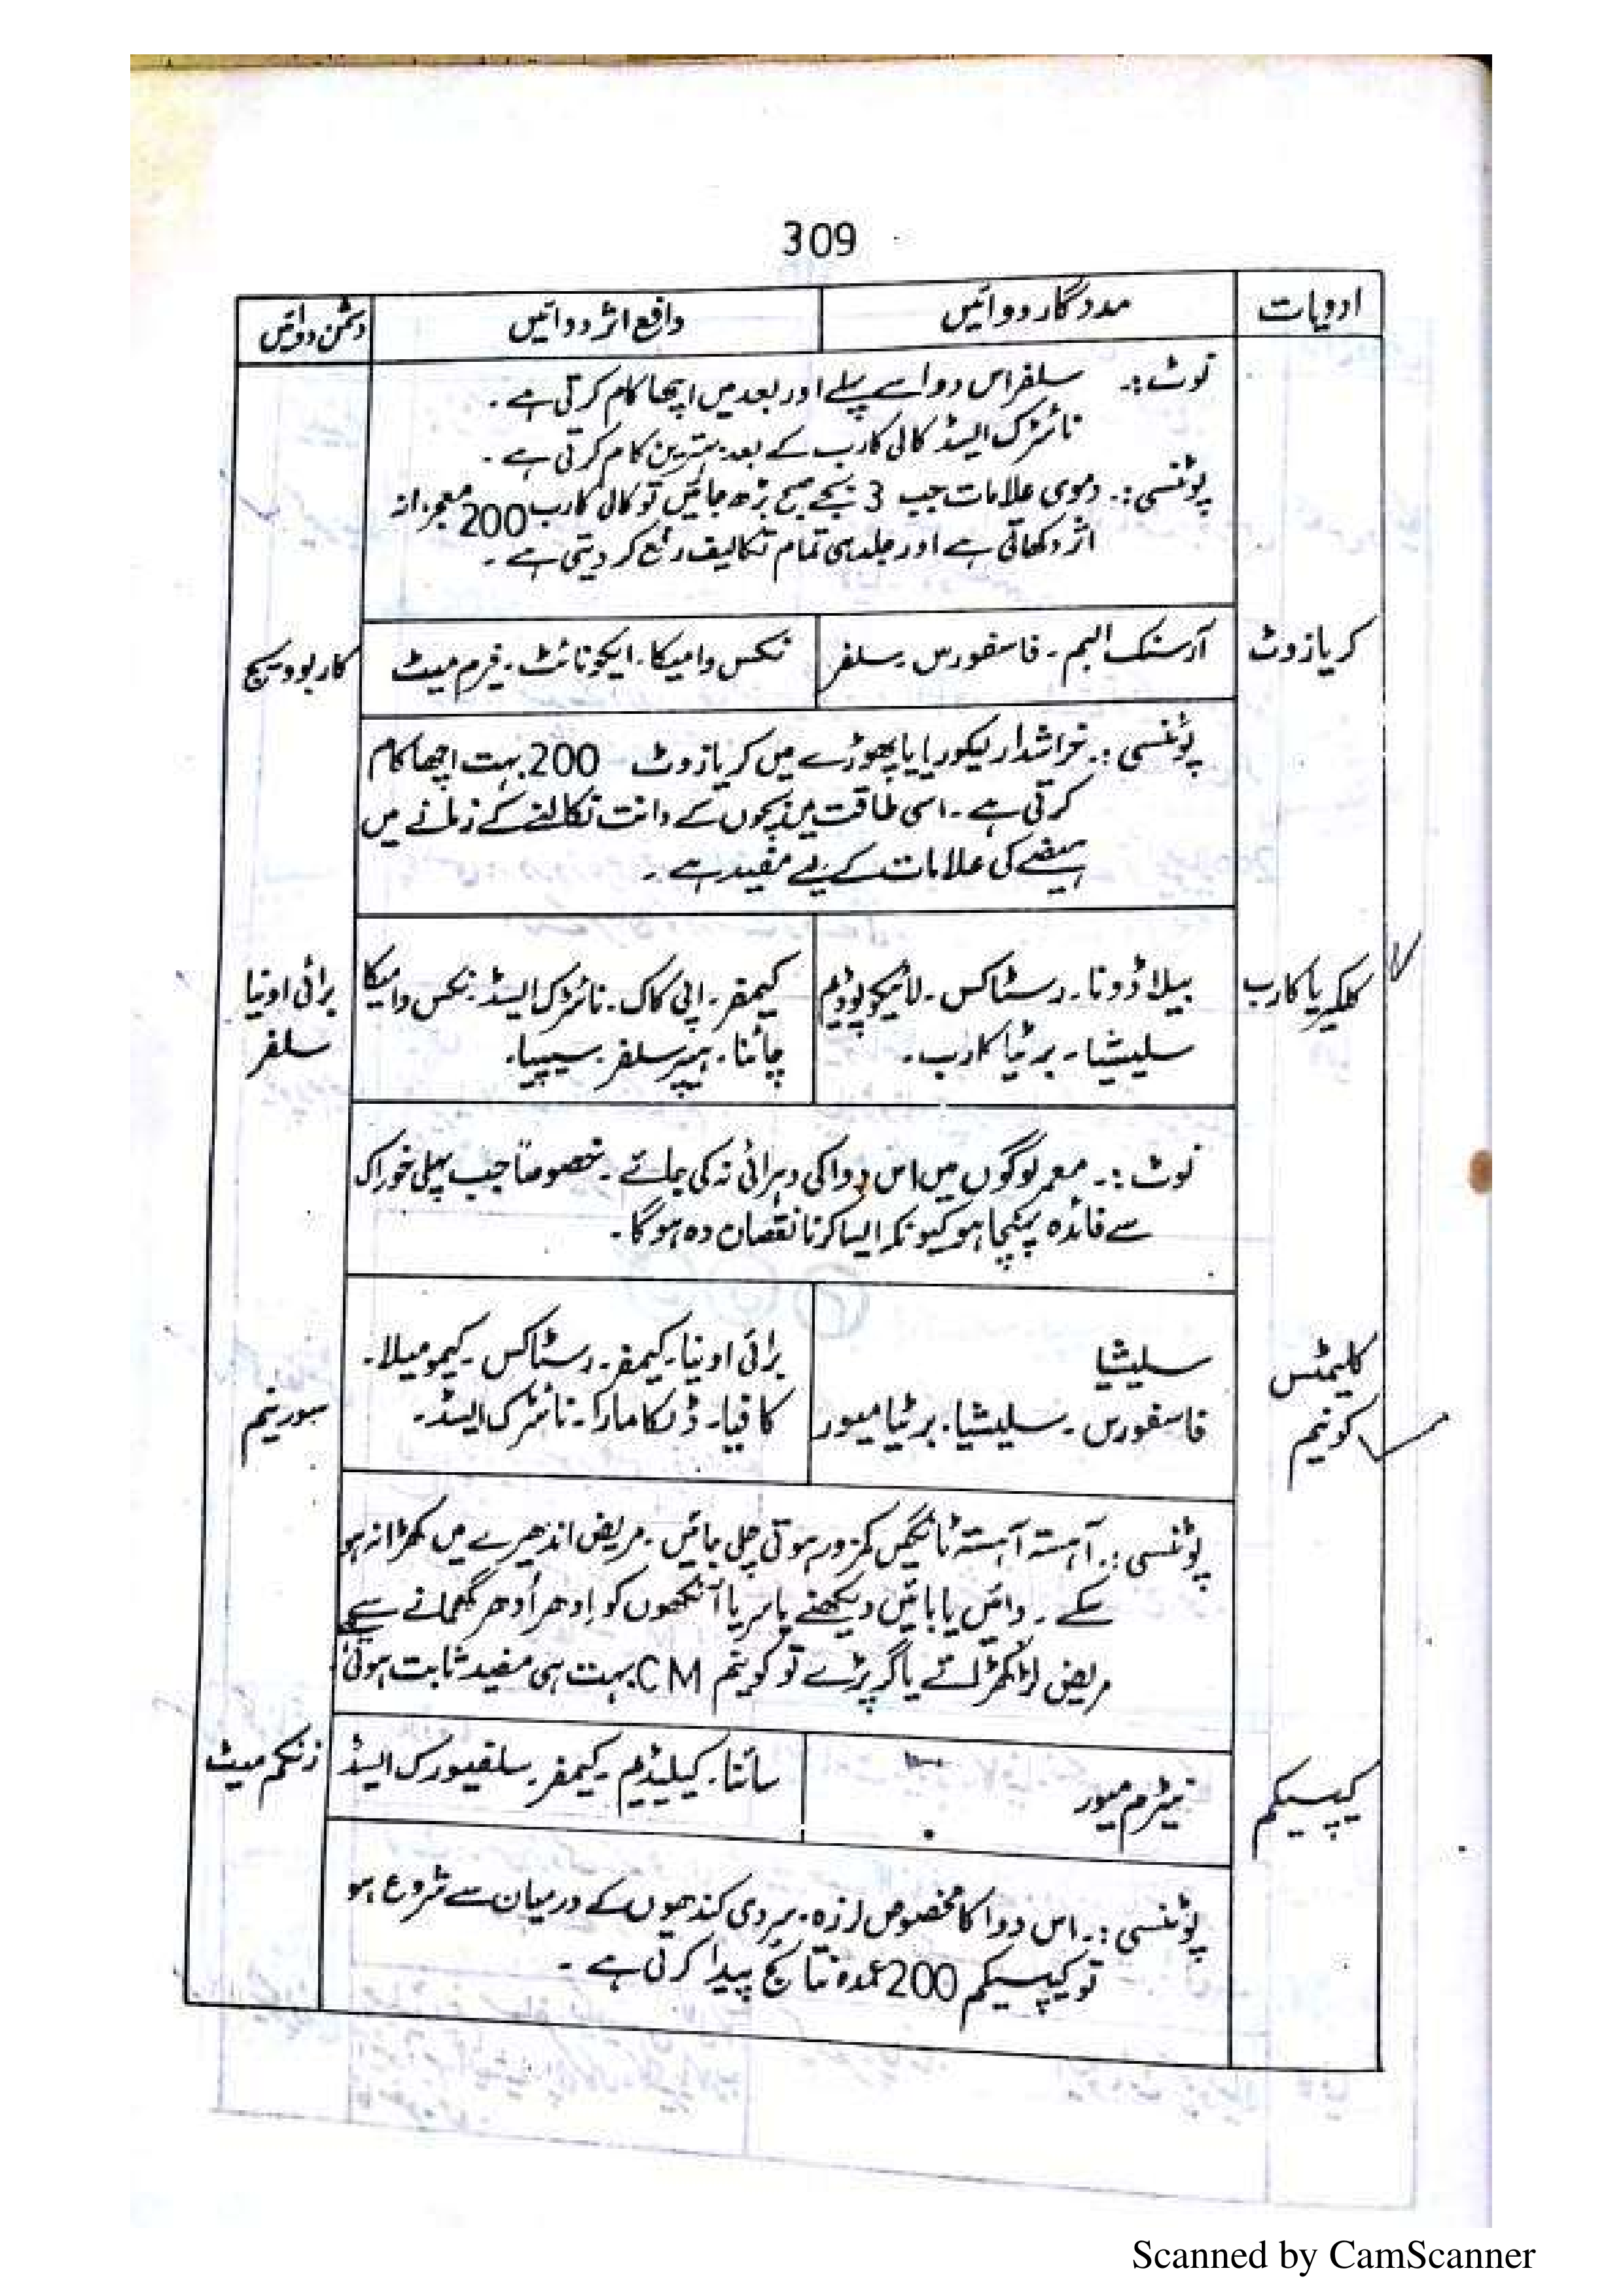 309
ادویات مددگار دوائیں دافع اثر دوائیں دشمن دوائیں
نوٹ :۔ سلفر اس دوا سے پہلے اور بعد میں اچھا کام کرتی ہے ۔
نائٹرک ایسڈ کالی کارب کے بعد بہترین کام کرتی ہے ۔
پوٹنسی :۔ دموی علامات جب 3 بجے صبح بڑھ جائیں تو کالی کارب 200 معجزانہ
اثر دکھاتی ہے اور جلد ہی تمام تکالیف رفع کر دیتی ہے ۔
کریازوٹ آرسنک البم ۔ فاسفورس ۔ سلفر نکس وامیکا ۔ ایکونائٹ ۔ فیرم میٹ کاربوویج
پوٹنسی :۔ خراشدار لیکوریا یا پھوڑے میں کریازوٹ 200 بہت اچھا کام
کرتی ہے ۔ اسی طاقت میں بچوں کے دانت نکالنے کے زمانے میں
ہیضے کی علامات کے لیے مفید ہے ۔
کلکیریا کارب بیلاڈونا ۔ رسٹاکس ۔ لائیکوپوڈیم کیمفر ۔ اپی کاک ۔ نائٹرک ایسڈ ۔ نکس وامیکا برائی اونیا
سلیشیا ۔ برٹیا کارب ۔ چائنا ۔ ہیپر سلفر ۔ سیپیا ۔ سلفر
نوٹ :۔ معمر لوگوں میں اس دوا کی دہرائی نہ کی جائے ۔ خصوصاً جب پہلی خوراک
سے فائدہ پہنچا ہو کیونکہ ایسا کرنا نقصان دہ ہوگا ۔
کلیمٹس سلیشیا برائی اونیا ۔ کیمفر ۔ رسٹاکس ۔ کیمومیلا ۔
کونیم فاسفورس ۔ سلیشیا ۔ برٹیا میور کافیا ۔ ڈلکامارا ۔ نائٹرک ایسڈ ۔ سورینم
پوٹنسی :۔ آہستہ آہستہ ٹانگیں کمزور ہوتی چلی جائیں ۔ مریض اندھیرے میں کھڑا نہ ہو
سکے ۔ دائیں یا بائیں دیکھنے یا سر یا آنکھوں کو اِدھر اُدھر گھمانے سے
مریض لڑکھڑائے یا گر پڑے تو کونیم CM بہت ہی مفید ثابت ہوتی
کیپسیکم نیٹرم میور سائنا ۔ کیلیڈیم ۔ کیمفر ۔ سلفیورک ایسڈ زنکم میٹ
پوٹنسی :۔ اس دوا کا مخصوص لرزہ ۔ سردی کندھوں کے درمیان سے شروع ہو
تو کیپسیکم 200 عمدہ نتائج پیدا کرتی ہے ۔
Scanned by CamScanner